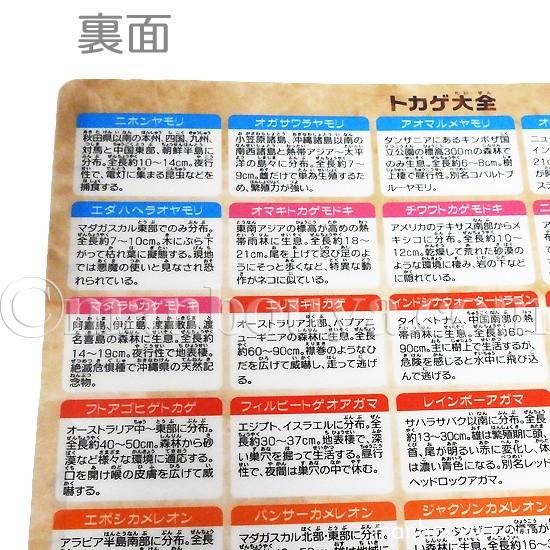 裏面
トカゲ大全
ニホンヤモリ
秋田県以南の本州、四国、九州、
対馬と中国東部、朝鮮半島に
分布。全長約10〜14cm。夜行
性で、電灯に集まる昆虫などを
捕食する。
オガサワラヤモリ
小笠原諸島、沖縄諸島以南の
南西諸島と熱帯アジア〜太平
洋の島々に分布。全長約7〜
9cm。雌だけで単為生殖するた
め、繁殖力が強い。
アオマルメヤモリ
タンザニアにあるキンボザ国
立公園の標高300mの森林で
のみ生息。全長約6〜8cm。樹
上棲で昼行性。別名コバルトブ
ルーヤモリ。
エダハヘラオヤモリ
マダガスカル東部でのみ分布。
全長約7〜10cm。木にぶら下
がって枯れ葉に擬態する。現地
では悪魔の使いと見なされ恐
れられている。
オマキトカゲモドキ
東南アジアの標高が高めの熱
帯雨林に生息。全長約18〜
21cm。尾を上げて忍び足のよ
うにそっと歩くなど、特異な動
作がネコに似ている。
チワワトカゲモドキ
アメリカのテキサス南部からメ
キシコに分布。全長約10〜
12cm。乾燥して荒れた砂漠の
ような環境に棲み、岩の下など
に隠れている。
マダラトカゲモドキ
阿嘉島、伊江島、渡嘉敷島、渡
名喜島の森林に生息。全長約
14〜19cm。夜行性で地表棲。
絶滅危惧種で沖縄県の天然記
念物。
エリマキトカゲ
オーストラリア北部、パプアニ
ューギニアの森林に生息。全長
約60〜90cm。襟巻のようなひ
だを広げて威嚇し、走って逃げ
る。
インドシナウォータードラゴン
タイ、ベトナム、中国南部の熱
帯雨林に生息。全長約60〜
90cm。主に樹上で生活するが、
危険を感じると水中に飛び込
んで逃げる。
フトアゴヒゲトカゲ
オーストラリア中〜東部に分布。
全長約40〜50cm。森林から砂
漠など様々な環境に適応する。
口を開け喉の皮膚を広げて威
嚇する。
フィルビートゲオアガマ
エジプト、イスラエルに分布。全
長約30〜37cm。地表棲で、深
い巣穴を掘って生活する。昼行
性で、夜間は巣穴の中で休む。
レインボーアガマ
サハラサバク以南に分布。全長
約13〜30cm。雄は繁殖期に頭、
首、尾が明るい赤に変化し、体
は濃い青色になる。別名レッド
ヘッドロックアガマ。
エボシカメレオン
アラビア半島南部に分布。全長
パンサーカメレオン
マダガスカル北部・東部に分布。
ジャクソンカメレオン